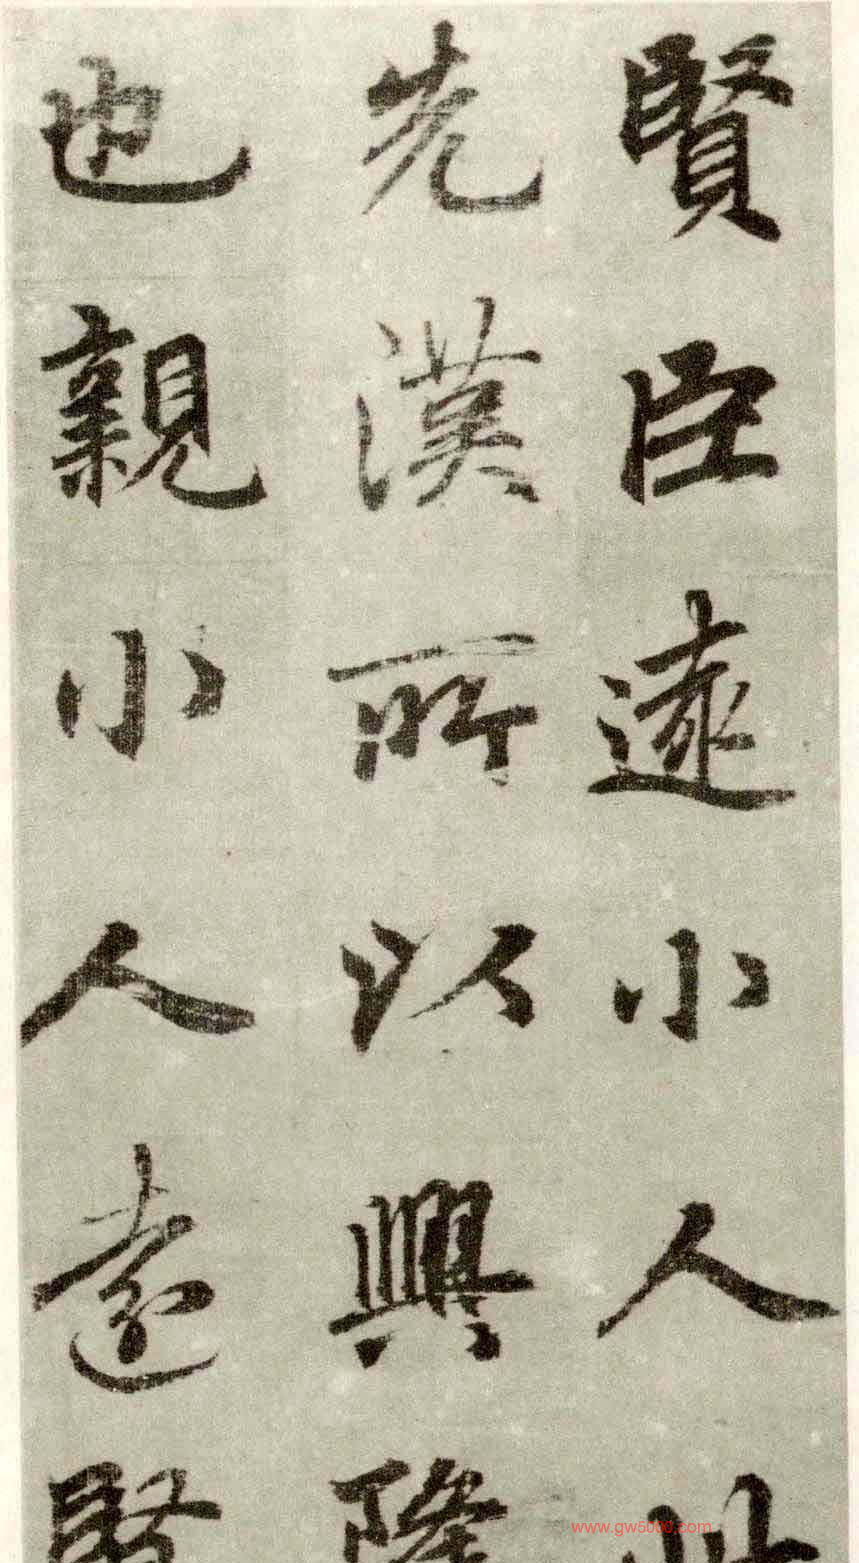 賢臣遠小人此
先漢所以興隆
也親小人遠賢
www.gw5000.com